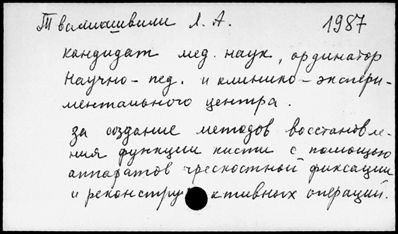 Твалиашвили Л. А. 1987
кандидат мед. наук, ординатор
Научно-пед. и клинико-экспери-
ментального центра.
за создание методов восстановле-
ния функции кисти с помощью
аппаратов чрескостной фиксации
и реконструктивных операций.